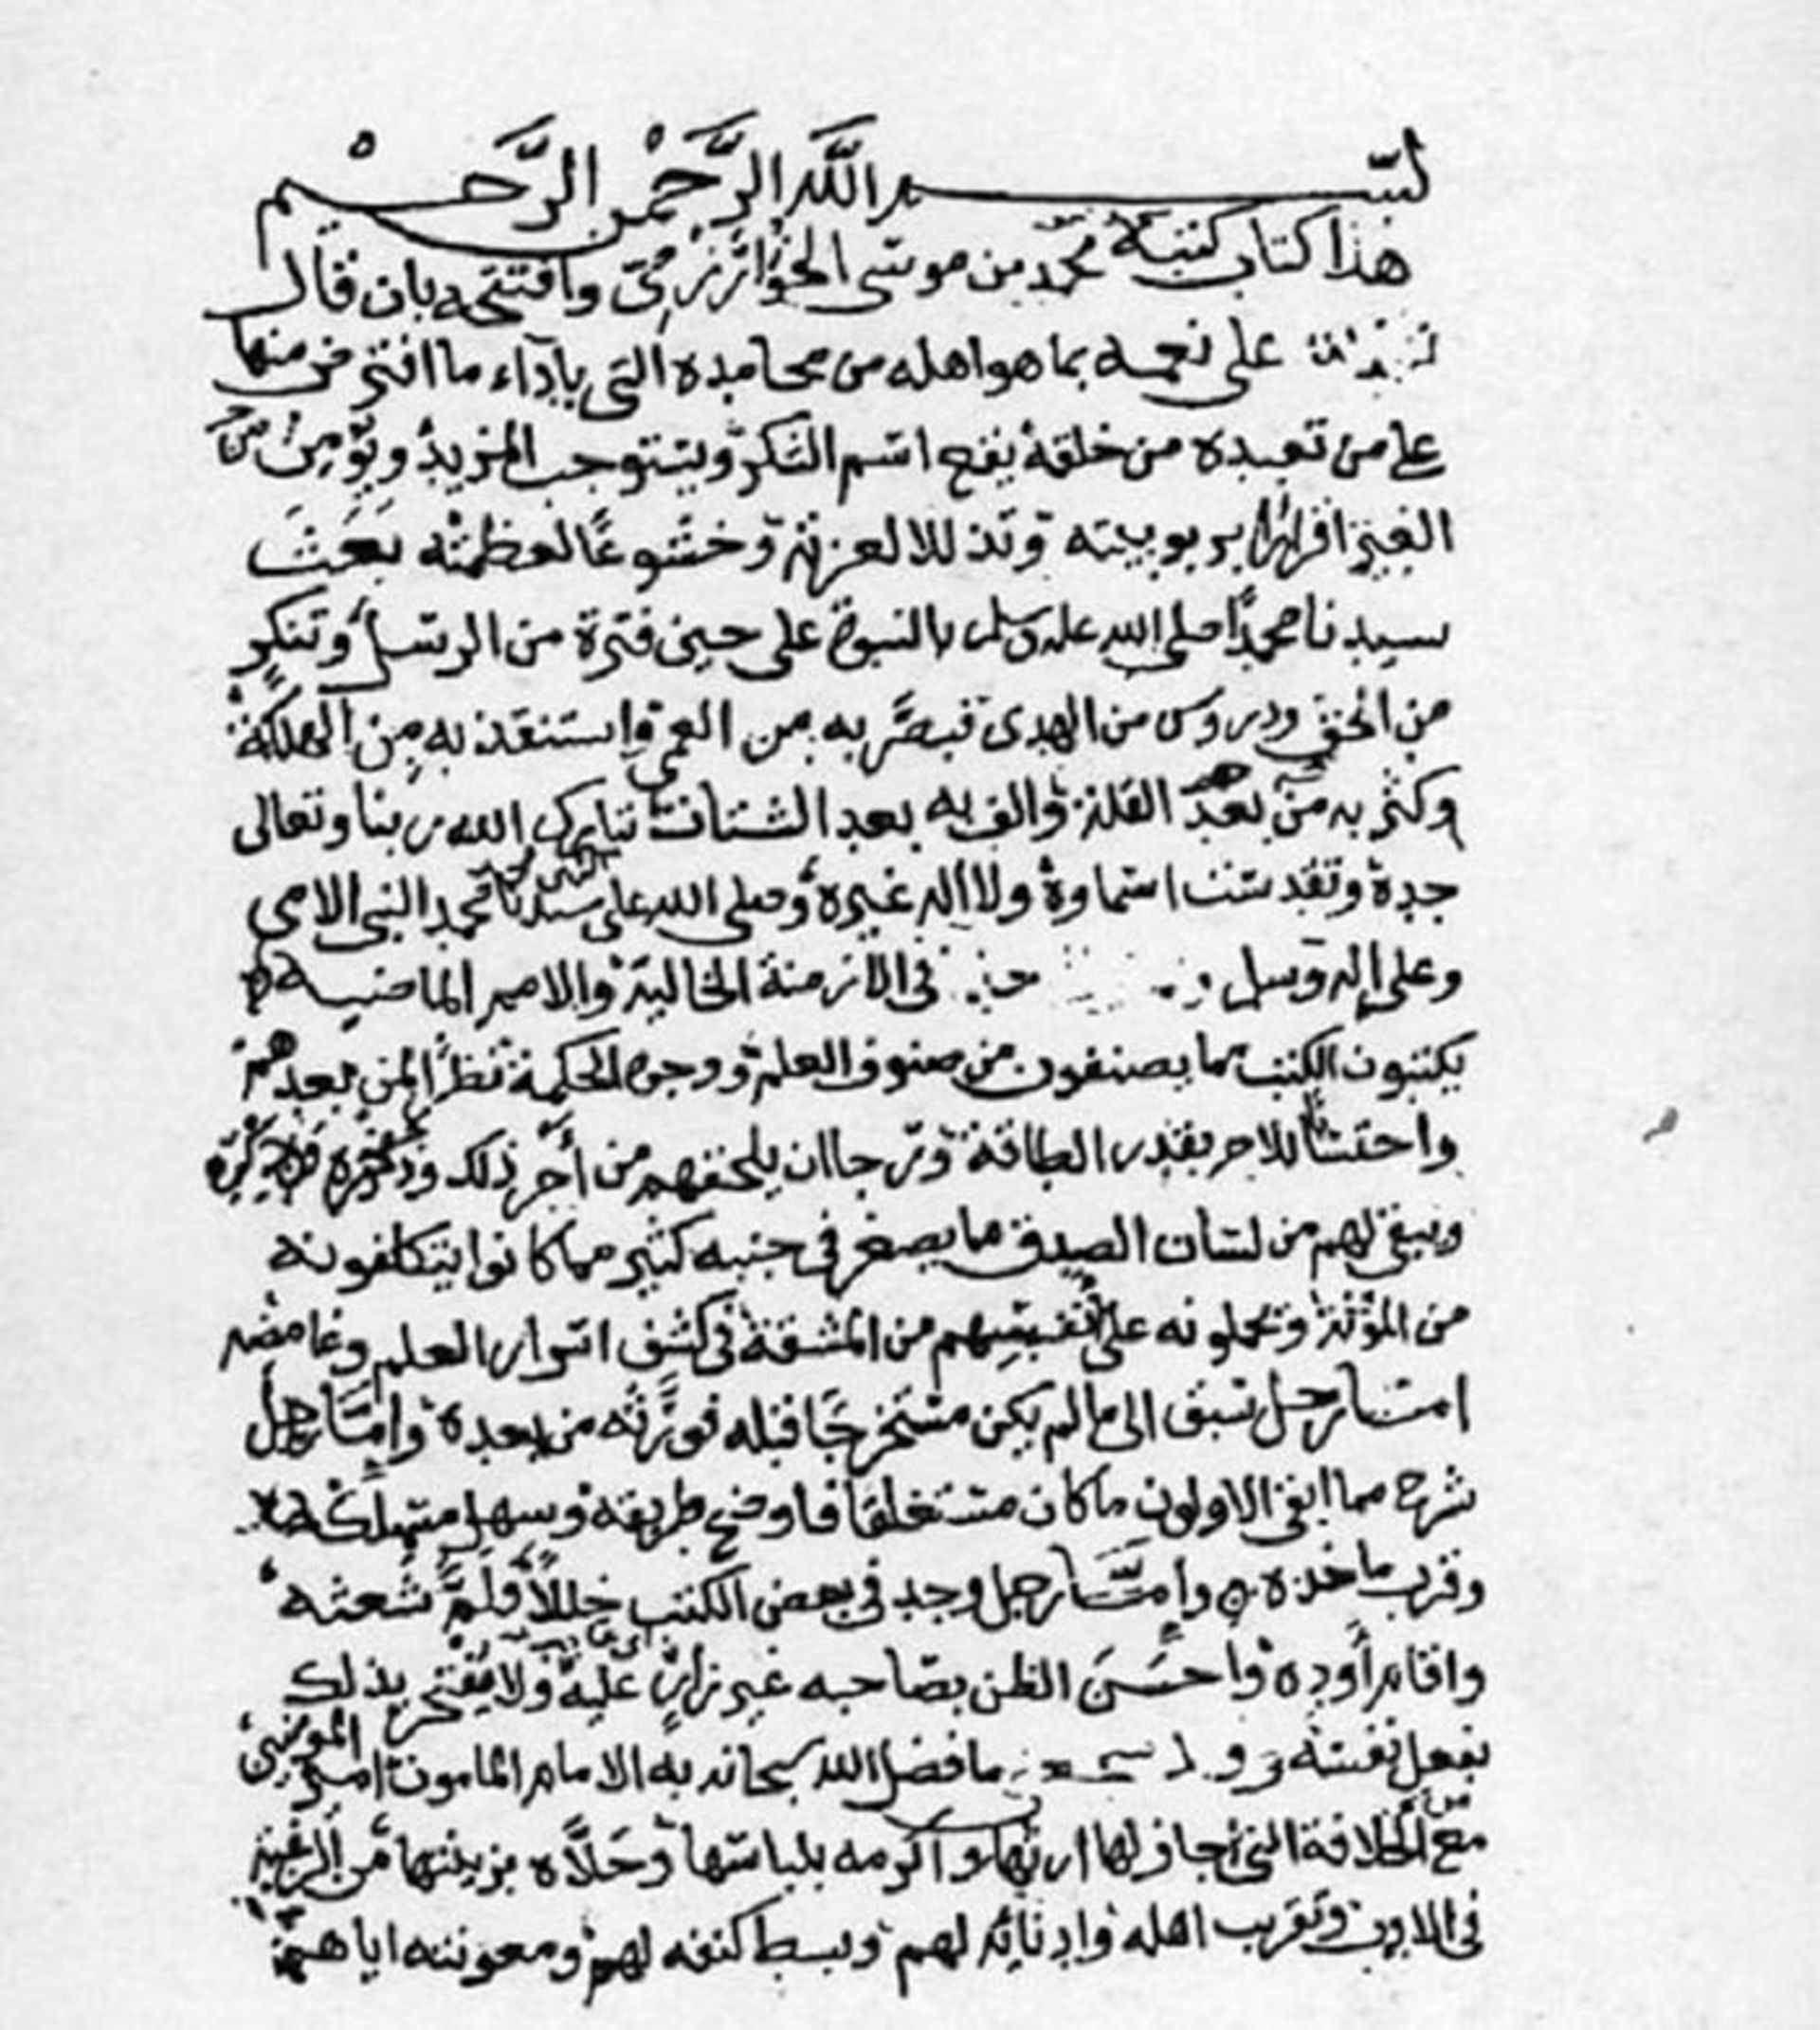 بسم الله الرحمن الرحيم
هذا كتاب محمد بن موسى الخوارزمي وافتتحه بان قال
على نعمه بما هو اهله من محامده التي بآداء ما افترض منها
على من تعبده من خلقه يقع اسم الشكر ويستوجب المزيد ويؤمن من
الغير اقرارا بربوبيته وتذللا لعزته وخشوعا لعظمته بعث
سيدنا محمدا صلى الله عليه وسلم بالنبوة على حين فترة من الرسل وتنكر
من الحق ودروس من الهدى فبصر به من العمى واستنقذ به من الهلكة
وكثر به من بعد القلة والف به بعد الشتات تبارك الله ربنا وتعالى
جده وتقدست اسماوه ولا اله غيره وصلى الله على سيدنا محمد النبي الامي
وعلى اله وسلم في الازمنة الخالية والامم الماضيه
يكتبون الكتب مما يصنفون من صنوف العلم ووجوه الحكمة نظرا لمن بعدهم
واحتسابا للاجر بقدر الطاقة ورجا ان يلحقهم من أجر ذلك وذخره وذكره
ويبقى لهم من لسان الصدق ما يصغر في جنبه كثير مما كانوا يتكلفونه
من المؤنة ويحملونه على أنفسهم من المشقة في كشف اسرار العلم وغامضه
اما رجل سبق الى ما لم يكن مستخرجا قبله فورثه من بعده واما رجل
شرح مما ابقى الاولون ما كان مستغلقا فاوضح طريقه وسهل مسلكه
وقرب ماخذه واما رجل وجد في بعض الكتب خللا فلم شعثه
واقام أوده واحسن الظن بصاحبه غير زار عليه ولا مفتخر بذلك
بفعل نفسه ما فضل الله سبحانه به الامام المامون امير المومنين
مع الخلافة التي حاز لها ارثها واكرمه بلباسها وحلاه بزينتها من الرغبة
في الادب وتقريب اهله وادنائه لهم وبسط كنفه لهم ومعونته اياهم